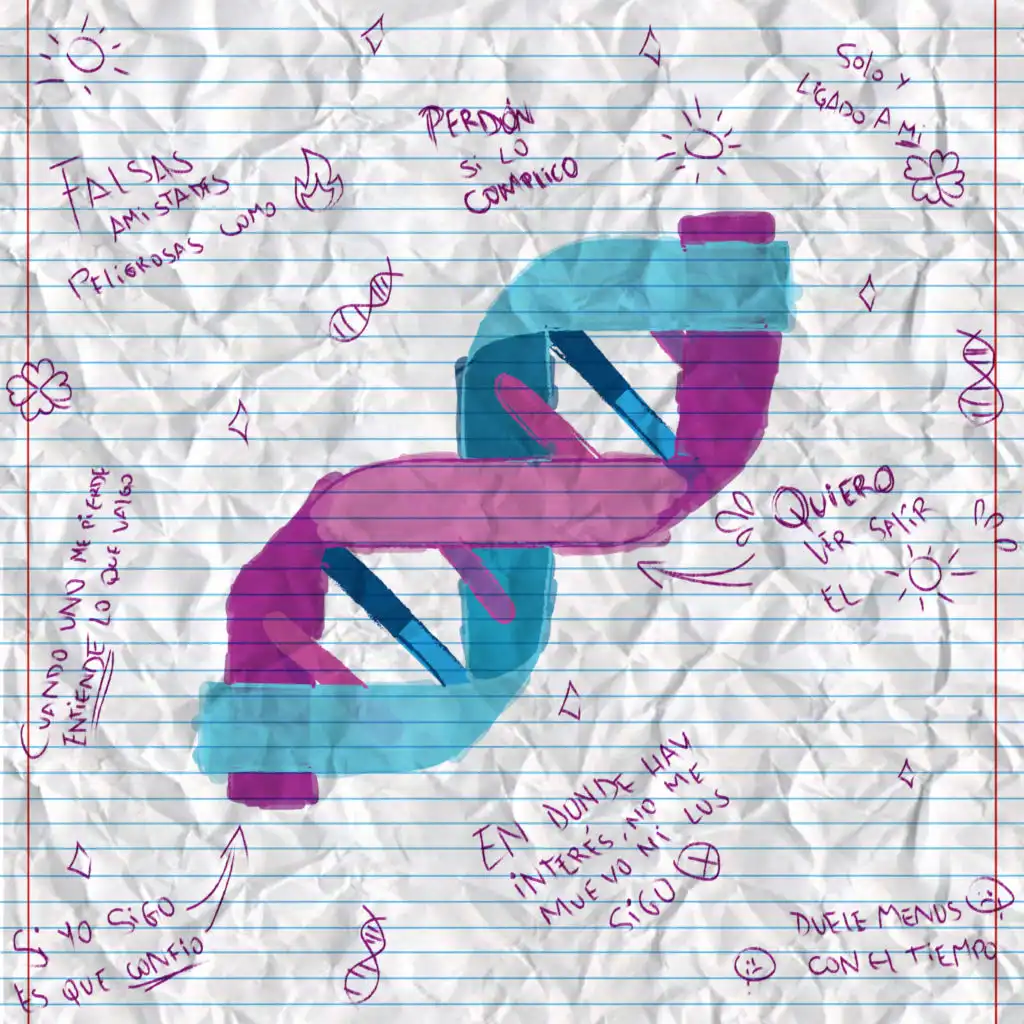 Solo y
LIGADO A Mi
PERDÓN
Si LO
COMPLICO
FALSAS
AMiSTADES
PELiGROSAS COMO
QUiERO
VER SALiR
EL
CUANDO UNO ME PiERDE
ENTiENDE LO QUE VALGO
EN DONDE HAY
iNTERÉS, NO ME
MUEVO Ni LOS
SiGO
Si YO SiGO
ES QUE CONFiO
DUELE MENOS
CON EL TiEMPO